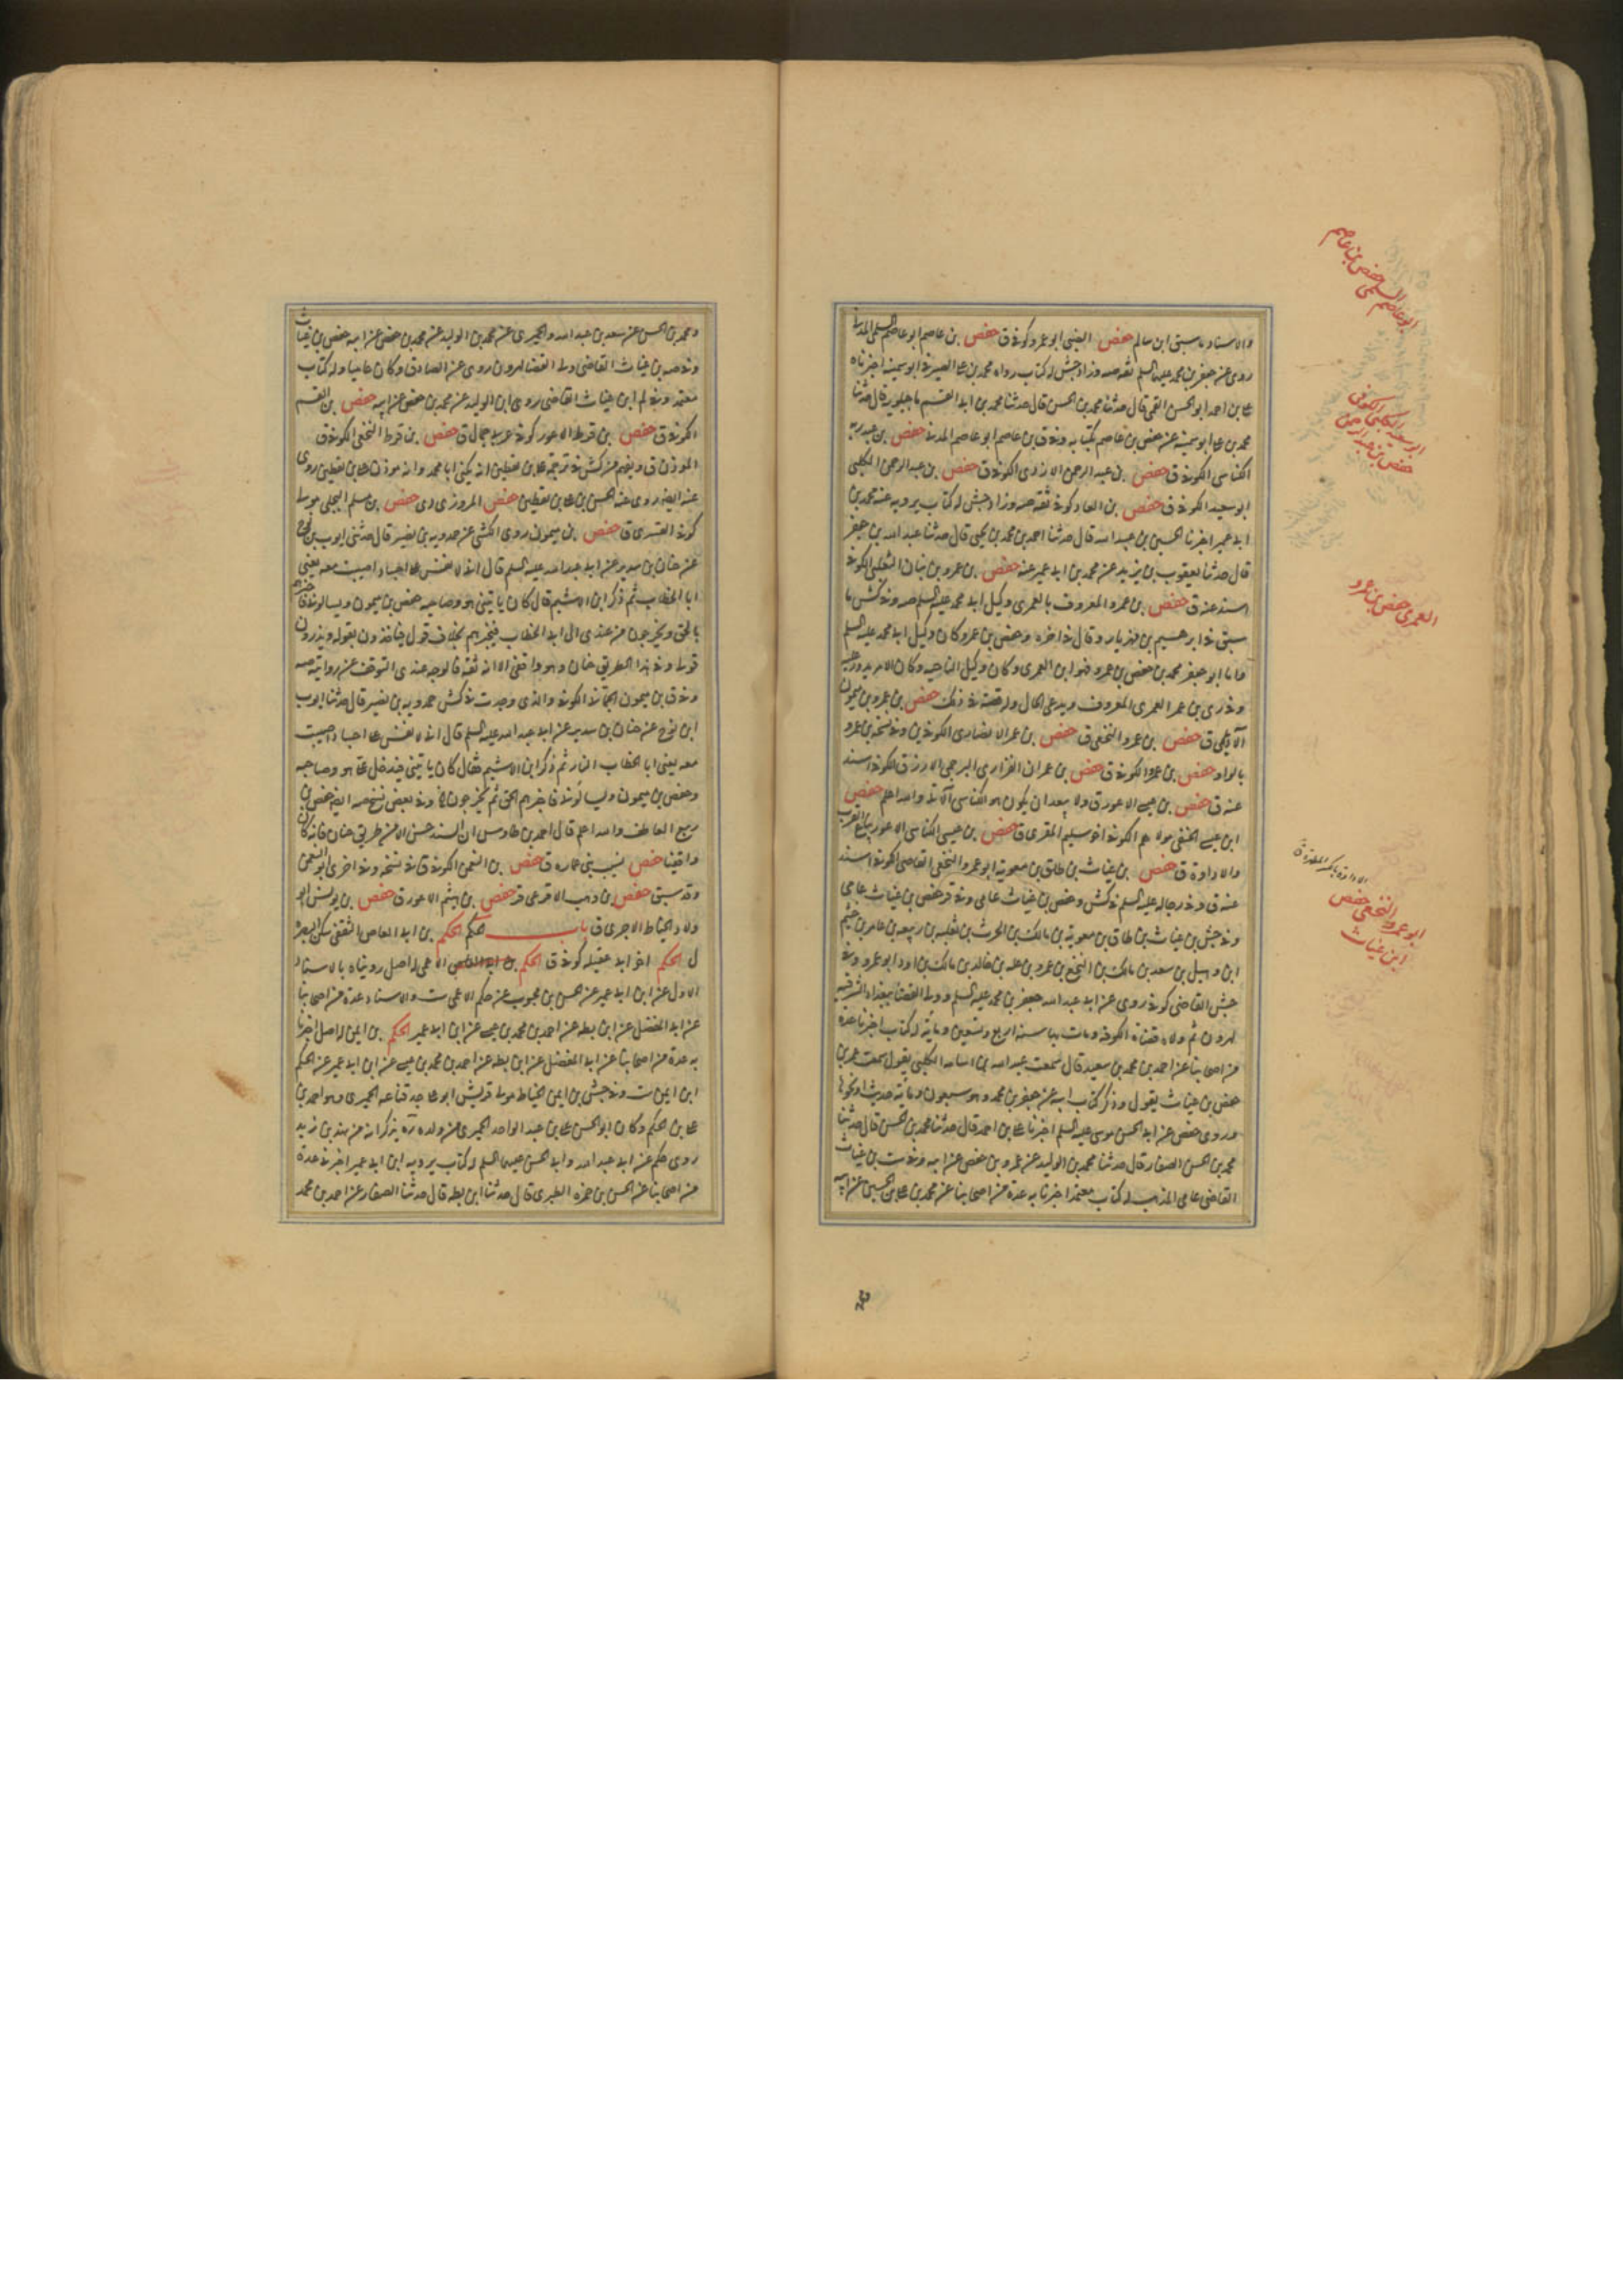 والاسناد ما سبق ابن سالم حفص الضبي ابو عمرو كوفي ق حفص بن عاصم ابو عاصم السلمي المدني
روى عن جعفر بن محمد عليه السلم ثقه صه وزاد جش له كتاب رواه محمد بن علي الصيرفي ابو سمينه اخبرناه
علي بن احمد ابو الحسن القمي قال حدثنا محمد بن الحسن قال حدثنا محمد بن ابي القسم ماجيلويه قال حدثنا
محمد بن علي ابو سمينه عن حفص بن عاصم بكتابه وفي ق بن عاصم ابو عاصم المدني حفص بن عبد ربه
الكناسي الكوفي ق حفص بن عبد الرحمن الازدي الكوفي ق حفص بن عبد الرحمن الكلبي
ابو سعيد الكوفي ق حفص بن العلا كوفي ثقه صه وزاد جش له كتاب يرويه عنه محمد بن
ابي عمير اخبرنا الحسين بن عبد الله قال حدثنا احمد بن محمد بن يحيى قال حدثنا عبد الله بن جعفر
قال حدثنا يعقوب بن يزيد عن محمد بن ابي عمير عنه حفص بن عمرو بن بنان الثعلبي الكوفي
اسند عنه ق حفص بن عمرو المعروف بالعمري وكيل ابي محمد عليه السلم صه وفي كش ما
سبق في ابرهيم بن مهزيار وقال في اخره وحفص بن عمرو كان وكيل ابي محمد عليه السلم
واما ابو جعفر محمد بن حفص بن عمرو فهو ابن العمري وكان وكيل الناحيه وكان الامر يدور عليه
وفي ري بن عمر العمري المعروف ويدعى الجمال وله قصة في ذلك حفص بن عمرو بن ميمون
الابلي ق حفص بن عمرو النخعي ق حفص بن عمر الانصاري الكوفي ين وفي نسخه بن عمرو
بالواو حفص بن عمر الكوفي ق حفص بن عمران الفزاري البرجمي الازرق الكوفي اسند
عنه ق حفص بن عيسى الاعور ق ولا يبعد ان يكون هو الكناسي الاتي والله اعلم حفص
ابن عيسى الحنفي مولاهم الكوفي اخو سليم المقري ق حفص بن عيسى الكناسي الاعور بياع القرب
والاداوة ق حفص بن غياث بن طلق بن معوية ابو عمرو النخعي القاضي الكوفي اسند
عنه ق وفي رجاله عليه السلم في كش وحفص بن غياث عامي وفي قر حفص بن غياث عامي
وفي جش بن غياث بن طلق بن معوية بن مالك بن الحرث بن ثعلبه بن ربيعه بن عامر بن جشم
ابن وهبيل بن سعد بن مالك بن النخع بن عمرو بن عله بن خالد بن مالك بن ادد ابو عمرو وفي
جش القاضي كوفي روى عن ابي عبد الله جعفر بن محمد عليه السلم وولي القضا ببغداد الشرقيه
لهرون ثم ولاه قضاء الكوفه ومات بها سنه اربع وتسعين ومايه له كتاب اخبرنا عدة
من اصحابنا عن احمد بن محمد بن سعيد قال سمعت عبد الله بن اسامه الكلبي يقول سمعت عمر بن
حفص بن غياث يقول وذكر كتاب ابيه عن جعفر بن محمد وهو سبعون ومائة حديث او نحوها
وروى حفص عن ابي الحسن موسى عليه السلم اخبرنا علي بن احمد قال حدثنا محمد بن الحسن قال حدثنا
محمد بن الحسن الصفار قال حدثنا محمد بن الوليد عن عمرو بن حفص عن ابيه وفي ست بن غياث
القاضي عامي المذهب له كتاب معتمد اخبرنا به عدة من اصحابنا عن محمد بن علي بن الحسين عن ابيه
حفص بن عاصم
ابو عاصم السلمي
ابو سعيد الكلبي الكوفي
حفص بن عبد الرحمن
العمري حفص بن عمرو
الاداوة بالكسر المطهرة ق
ابو عمرو النخعي حفص
ابن غياث
ومحمد بن الحسن عن سعد بن عبد الله والحميري عن محمد بن الوليد عن محمد بن حفص عن ابيه حفص بن غياث
وفي صه بن غياث القاضي ولي القضا لهرون روى عن الصادق وكان عاميا وله كتاب
معتمد وفي لم ابن غياث القاضي روى ابن الوليد عن محمد بن حفص عن ابيه حفص بن القسم
الكوفي ق حفص بن قرط الاعور كوفي عربي جمال ق حفص بن قرط النخعي الكوفي ق
المؤذن ق ويفهم من كش في ترجمة علي بن يقطين انه يكنى ابا محمد وانه مؤذن علي بن يقطين روى
عنه ايضا روى عنه الحسن بن علي بن يقطين حفص المروزي دى حفص بن مسلم البجلي مولى
كوفي القسري ق حفص بن ميمون روى الكشي عن حمدويه بن نصير قال حدثني ايوب بن نوح
عن حنان بن سدير عن ابي عبد الله عليه السلم قال اني لانفس على اجساد اصيبت معه يعني
ابا الخطاب ثم ذكر ابن الاشيم قال كان ياتيني هو وصاحبه حفص بن ميمون ويسالوني فاخبرهم
بالحق ويخرجون من عندي الى ابي الخطاب فيخبرهم بخلاف قولي فياخذون بقوله ويذرون
قولي وفي هذا الطريق حنان وهو واقفي الا انه ثقه فالوجه عندي التوقف عن روايته صه
وفي ق بن ميمون الجماني الكوفي والذي وجدت في كش حمدويه بن نصير قال حدثنا ايوب
ابن نوح عن حنان بن سدير عن ابي عبد الله عليه السلم قال اني لانفس على اجساد اصيبت
معه يعني ابا الخطاب النار ثم ذكر ابن الاشيم فقال كان ياتيني فيدخل علي هو وصاحبه
وحفص بن ميمون ويسالوني فاخبرهم الحق ثم يخرجون وفي بعض نسخ صه ايضا حفص بن
ربيع العاطف والله اعلم قال احمد بن طاوس ان السند حسن الا من طريق حنان فانه كان
واقفيا حفص نسيب بني عماره ق حفص بن النعمن الكوفي ق في نسخه وفي اخرى ابو النعمن
وقد سبق حفص بن وهب الاقرعي قر حفص بن هيثم الاعور ق حفص بن يونس ابو
ولاد الحناط الاجري ق باب الحكم الحكم بن ابي العاص الثقفي سكن البصرة
ل الحكم اخو ابي عقيله كوفي ق الحكم الاعمى له اصل رويناه بالاسناد
الاول عن ابن ابي عمير عن الحسن بن محبوب عن حكم الاعمى ست والاسناد عدة من اصحابنا
عن ابي المفضل عن ابن بطه عن احمد بن محمد بن عيسى عن ابن ابي عمير الحكم بن ايمن له اصل اخبرنا
به عدة من اصحابنا عن ابي المفضل عن ابن بطه عن احمد بن محمد بن عيسى عن ابن ابي عمير عن الحكم
ابن ايمن ست وفي جش بن ايمن الحناط مولى قريش ابو علي جد فقاعه الحميري وهو احمد بن
علي بن الحكم وكان ابو الحسن علي بن عبد الواحد الحميري من ولده يذكر انه من نهد بن زيد
روى حكم عن ابي عبد الله وابي الحسن عليهما السلم له كتاب يرويه ابن ابي عمير اخبرني عدة
من اصحابنا عن الحسن بن حمزه الطبري قال حدثنا ابن بطه قال حدثنا الصفار عن احمد بن محمد